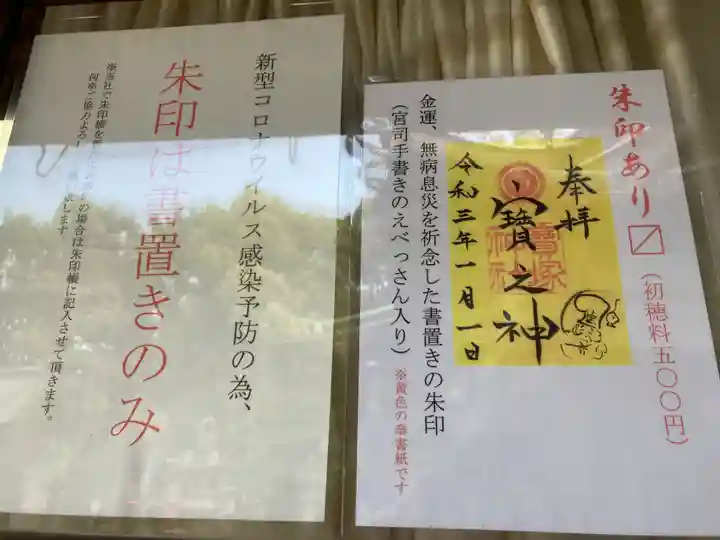 朱印あり
(初穂料五〇〇円)
奉拝
寶之神
寶塚
神社
令和三年一月一日
金運、無病息災を祈念した書置きの朱印
(宮司手書きのえべっさん入り)
※黄色の奉書紙です
新型コロナウイルス感染予防の為、
朱印は書置きのみ
※当社で朱印帳を
の場合は朱印帳に記入させて頂きます。
何卒ご協力よろし
致します